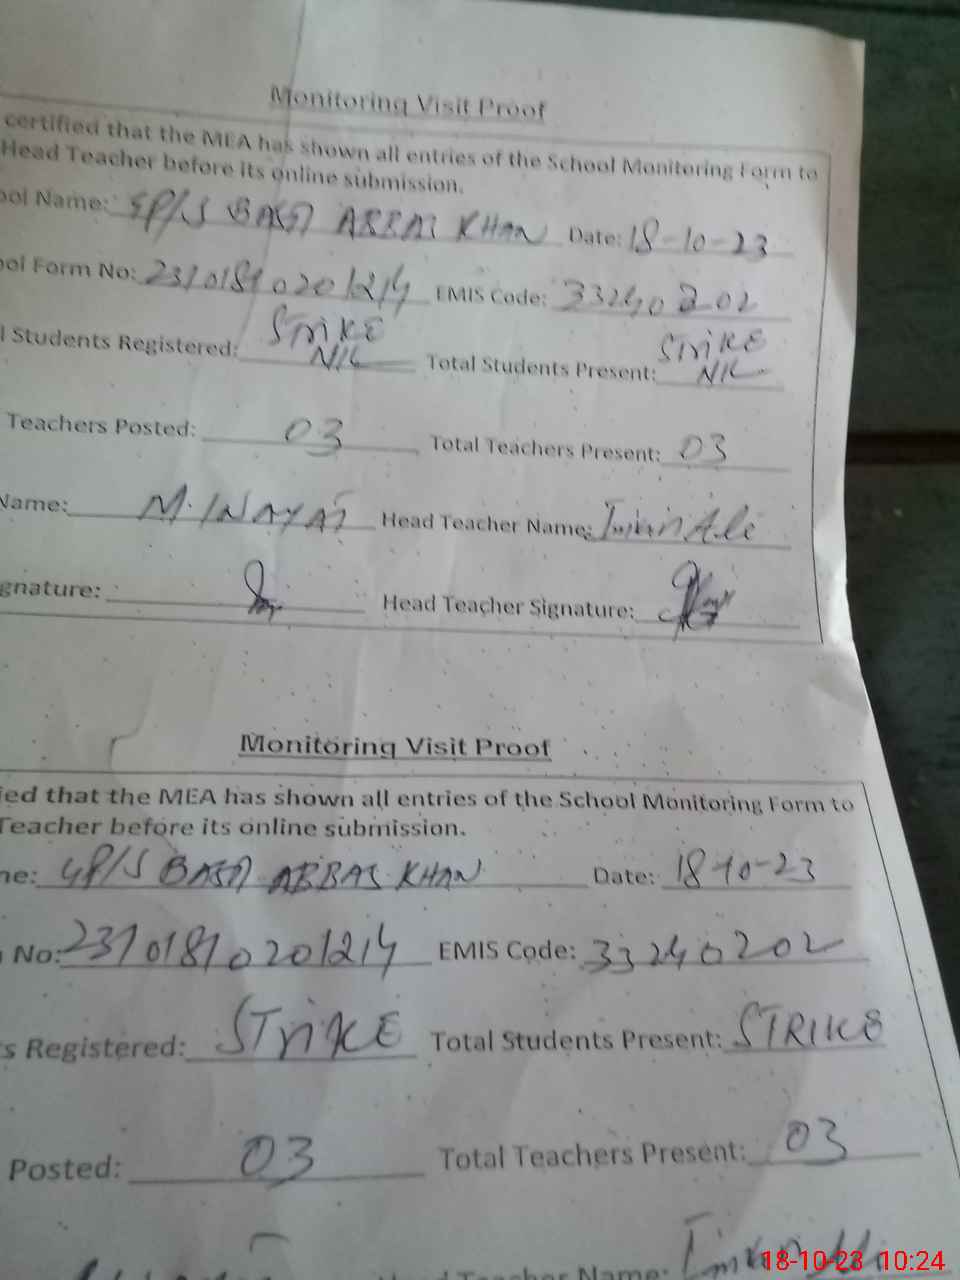 Monitoring Visit Proof
certified that the MEA has shown all entries of the School Monitoring Form to
Head Teacher before its online submission.
ool Name: GP/S BASTI ABBAS KHAN Date: 18-10-23
ool Form No: 2310181020 1214 EMIS Code: 33240202
l Students Registered: STriKE NIL Total Students Present: STriKE NIL
Teachers Posted: 03 Total Teachers Present: 03
Name: M. INAYAT Head Teacher Name: Ali
gnature: Head Teacher Signature:
Monitoring Visit Proof
ied that the MEA has shown all entries of the School Monitoring Form to
Teacher before its online submission.
me: GP/S BASTI ABBAS KHAN Date: 18-10-23
No: 23101810201214 EMIS Code: 33240202
s Registered: STriKE Total Students Present: STRIKE
Posted: 03 Total Teachers Present: 03
Teacher Name:
18-10-23 10:24